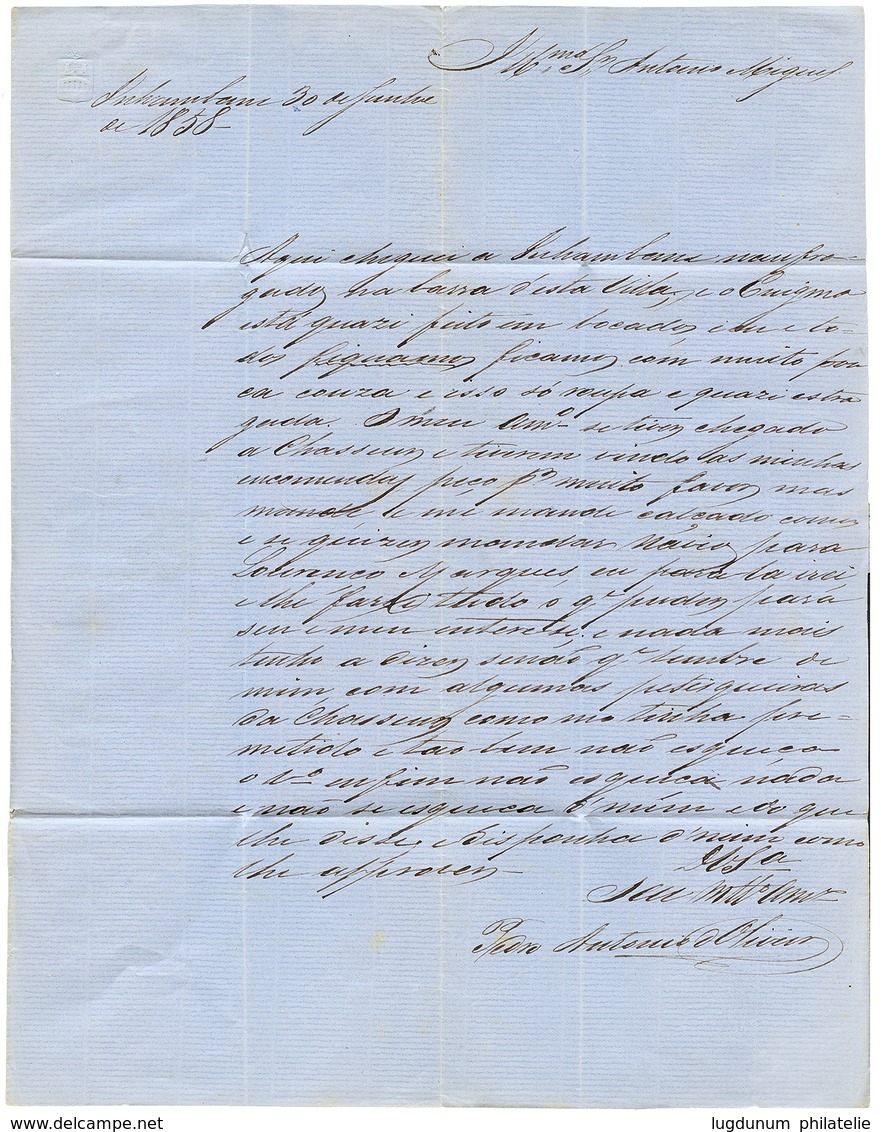 Illmo. Sr. Antonio Miguel
Inhambane 30 de Junho
de 1858
Aqui cheguei a Inhambane naufra-
gado, na barra d'esta Villa, e o Enigma
está quazi feito em bocados, e eu e to-
dos ficamos com muito pou
ca couza e isso só roupa e quazi estra
gada. O meu Amo. se tiver chegado
a Chasseur e tiverem vindo as minhas
encomendas peço pr. muito favor mas
mande e me mande calçado
e se quizer mandar Navio para
Lourenco Marques, eu para la irei
e lhe farei tudo o qe. puder para
seu e meu interesse, e nada mais
tenho a dizer senão qe. lembre de
mim, com algumas petisqueiras
da Chasseur, como me tinha pre-
metido e tao bem não esqueca
o Vo. enfim não esqueca nada
e não se esqueca d'mim e do que
lhe disse, disponha d'mim como
lhe approver
Seu Mto. Amo.
Pedro Antonio d'Oliveira
www.delcampe.net
lugdunum philatelie